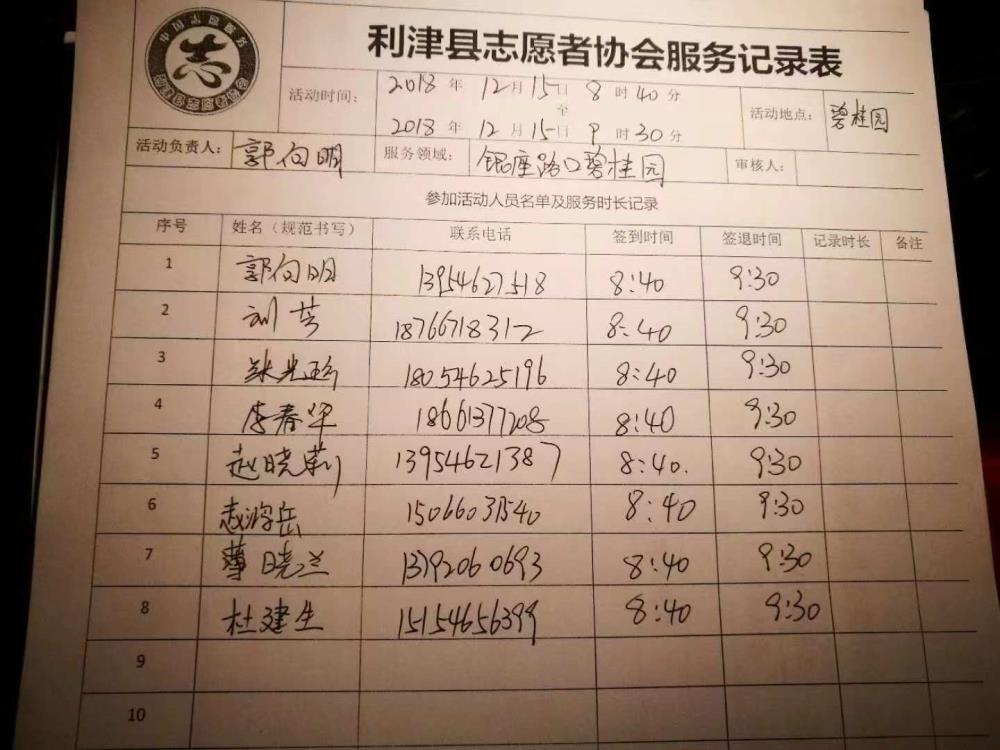 志
利津县志愿者协会服务记录表
活动时间: 2018 年 12 月 15 日 8 时 40 分
至
2018 年 12 月 15 日 9 时 30 分
活动地点: 碧桂园
活动负责人: 郭向明 服务领域: 银座路口碧桂园 审核人:
参加活动人员名单及服务时长记录
序号 姓名（规范书写） 联系电话 签到时间 签退时间 记录时长 备注
1 郭向明 13954627518 8:40 9:30
2 刘芳 18766718312 8:40 9:30
3 18054625196 8:40 9:30
4 李春华 18661377208 8:40 9:30
5 赵晓莉 13954621387 8:40. 9:30
6 15066031540 8:40 9:30
7 薄晓兰 13792060693 8:40 9:30
8 杜建生 15154656399 8:40 9:30
9
10